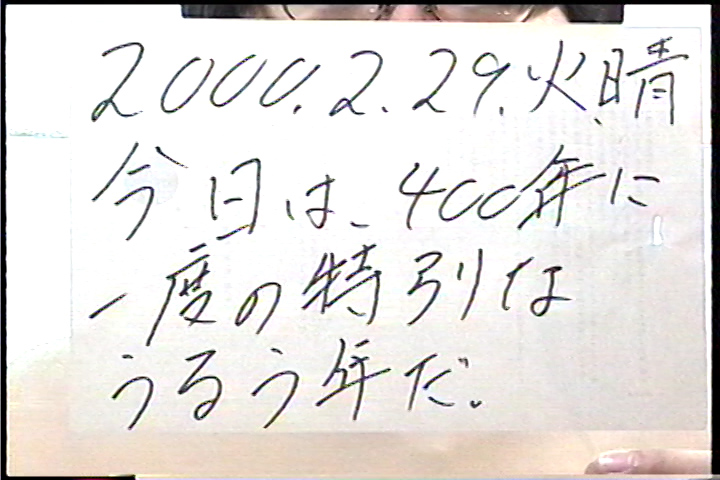 2000.2.29.火.晴
今日は、400年に
一度の特別な
うるう年だ.